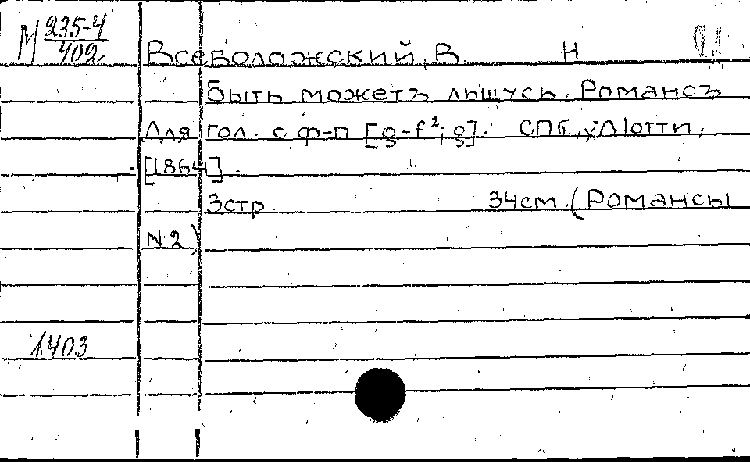 М 235-4
402
Всеволожский, В. Н
Быть можетъ льщусь. Романсъ
Для гол. с ф-п [g-f²; g]. СПб, у Діотти,
[1864].
3стр 34см. (Романсы
N.2)
1403